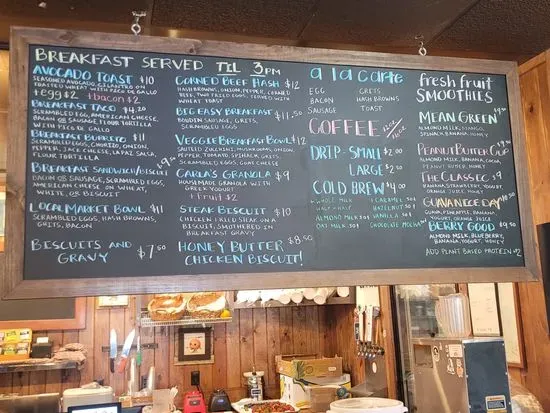 BREAKFAST SERVED TIL 3PM
AVOCADO TOAST $10
SEASONED AVOCADO, CILANTRO ON
TOASTED WHEAT WITH PICO DE GALLO
+egg $2 +bacon $2
BREAKFAST TACO $4.20
SCRAMBLED EGG, AMERICAN CHEESE,
BACON OR SAUSAGE FLOUR TORTILLA
WITH PICO DE GALLO
BREAKFAST BURRITO $11
SCRAMBLED EGGS, CHORIZO, ONION,
PEPPER, JACK CHEESE, SALSA,
FLOUR TORTILLA
BREAKFAST SANDWICH/BISCUIT
BACON OR SAUSAGE, SCRAMBLED EGGS,
AMERICAN CHEESE ON WHEAT,
WHITE, OR BISCUIT
LOCAL MARKET BOWL $11
SCRAMBLED EGGS, HASH BROWNS,
GRITS, BACON
BISCUITS AND
GRAVY $7.50
CORNED BEEF HASH $12
HASH BROWNS, ONION, PEPPER, CORNED
BEEF, TWO FRIED EGGS, SERVED WITH
WHEAT TOAST
BIG EASY BREAKFAST $11.50
BOUDEN SAUSAGE, GRITS,
SCRAMBLED EGGS
VEGGIE BREAKFAST BOWL $12
SAUTEED ZUCCHINI, MUSHROOMS, ONION,
PEPPER, TOMATO, SPINACH, GRITS
SCRAMBLED EGGS, GOAT CHEESE
CARLA'S GRANOLA $9
HOUSEMADE GRANOLA WITH
GREEK YOGURT
+fruit $2
STEAK BISCUIT $10
CHICKEN FRIED STEAK ON A
BISCUIT, SMOTHERED IN
BREAKFAST GRAVY
HONEY BUTTER $8.50
CHICKEN BISCUIT!
a la carte
EGG GRITS
BACON HASH BROWNS
SAUSAGE TOAST
COFFEE
DRIP- SMALL $2
LARGE $2.50
COLD BREW $4.00
WHOLE MILK
HALF + HALF
ALMOND MILK 50¢
OAT MILK 50¢
+CARAMEL
HAZELNUT 50¢
VANILLA
CHOCOLATE MOCHA
fresh fruit
SMOOTHIES
MEAN GREEN
ALMOND MILK, MANGO,
SPINACH, BANANA, HONEY
PEANUT BUTTER CUP
ALMOND MILK, BANANA, COCOA
PEANUT BUTTER, HONEY
THE CLASSIC $9
BANANA, STRAWBERRY, YOGURT
ORANGE JUICE, HONEY
GUAVA NICE DAY
GUAVA, PINEAPPLE, BANANA,
YOGURT, ORANGE JUICE
BERRY GOOD
ALMOND MILK, BLUEBERRY,
BANANA, YOGURT, HONEY
ADD PLANT BASED PROTEIN $2